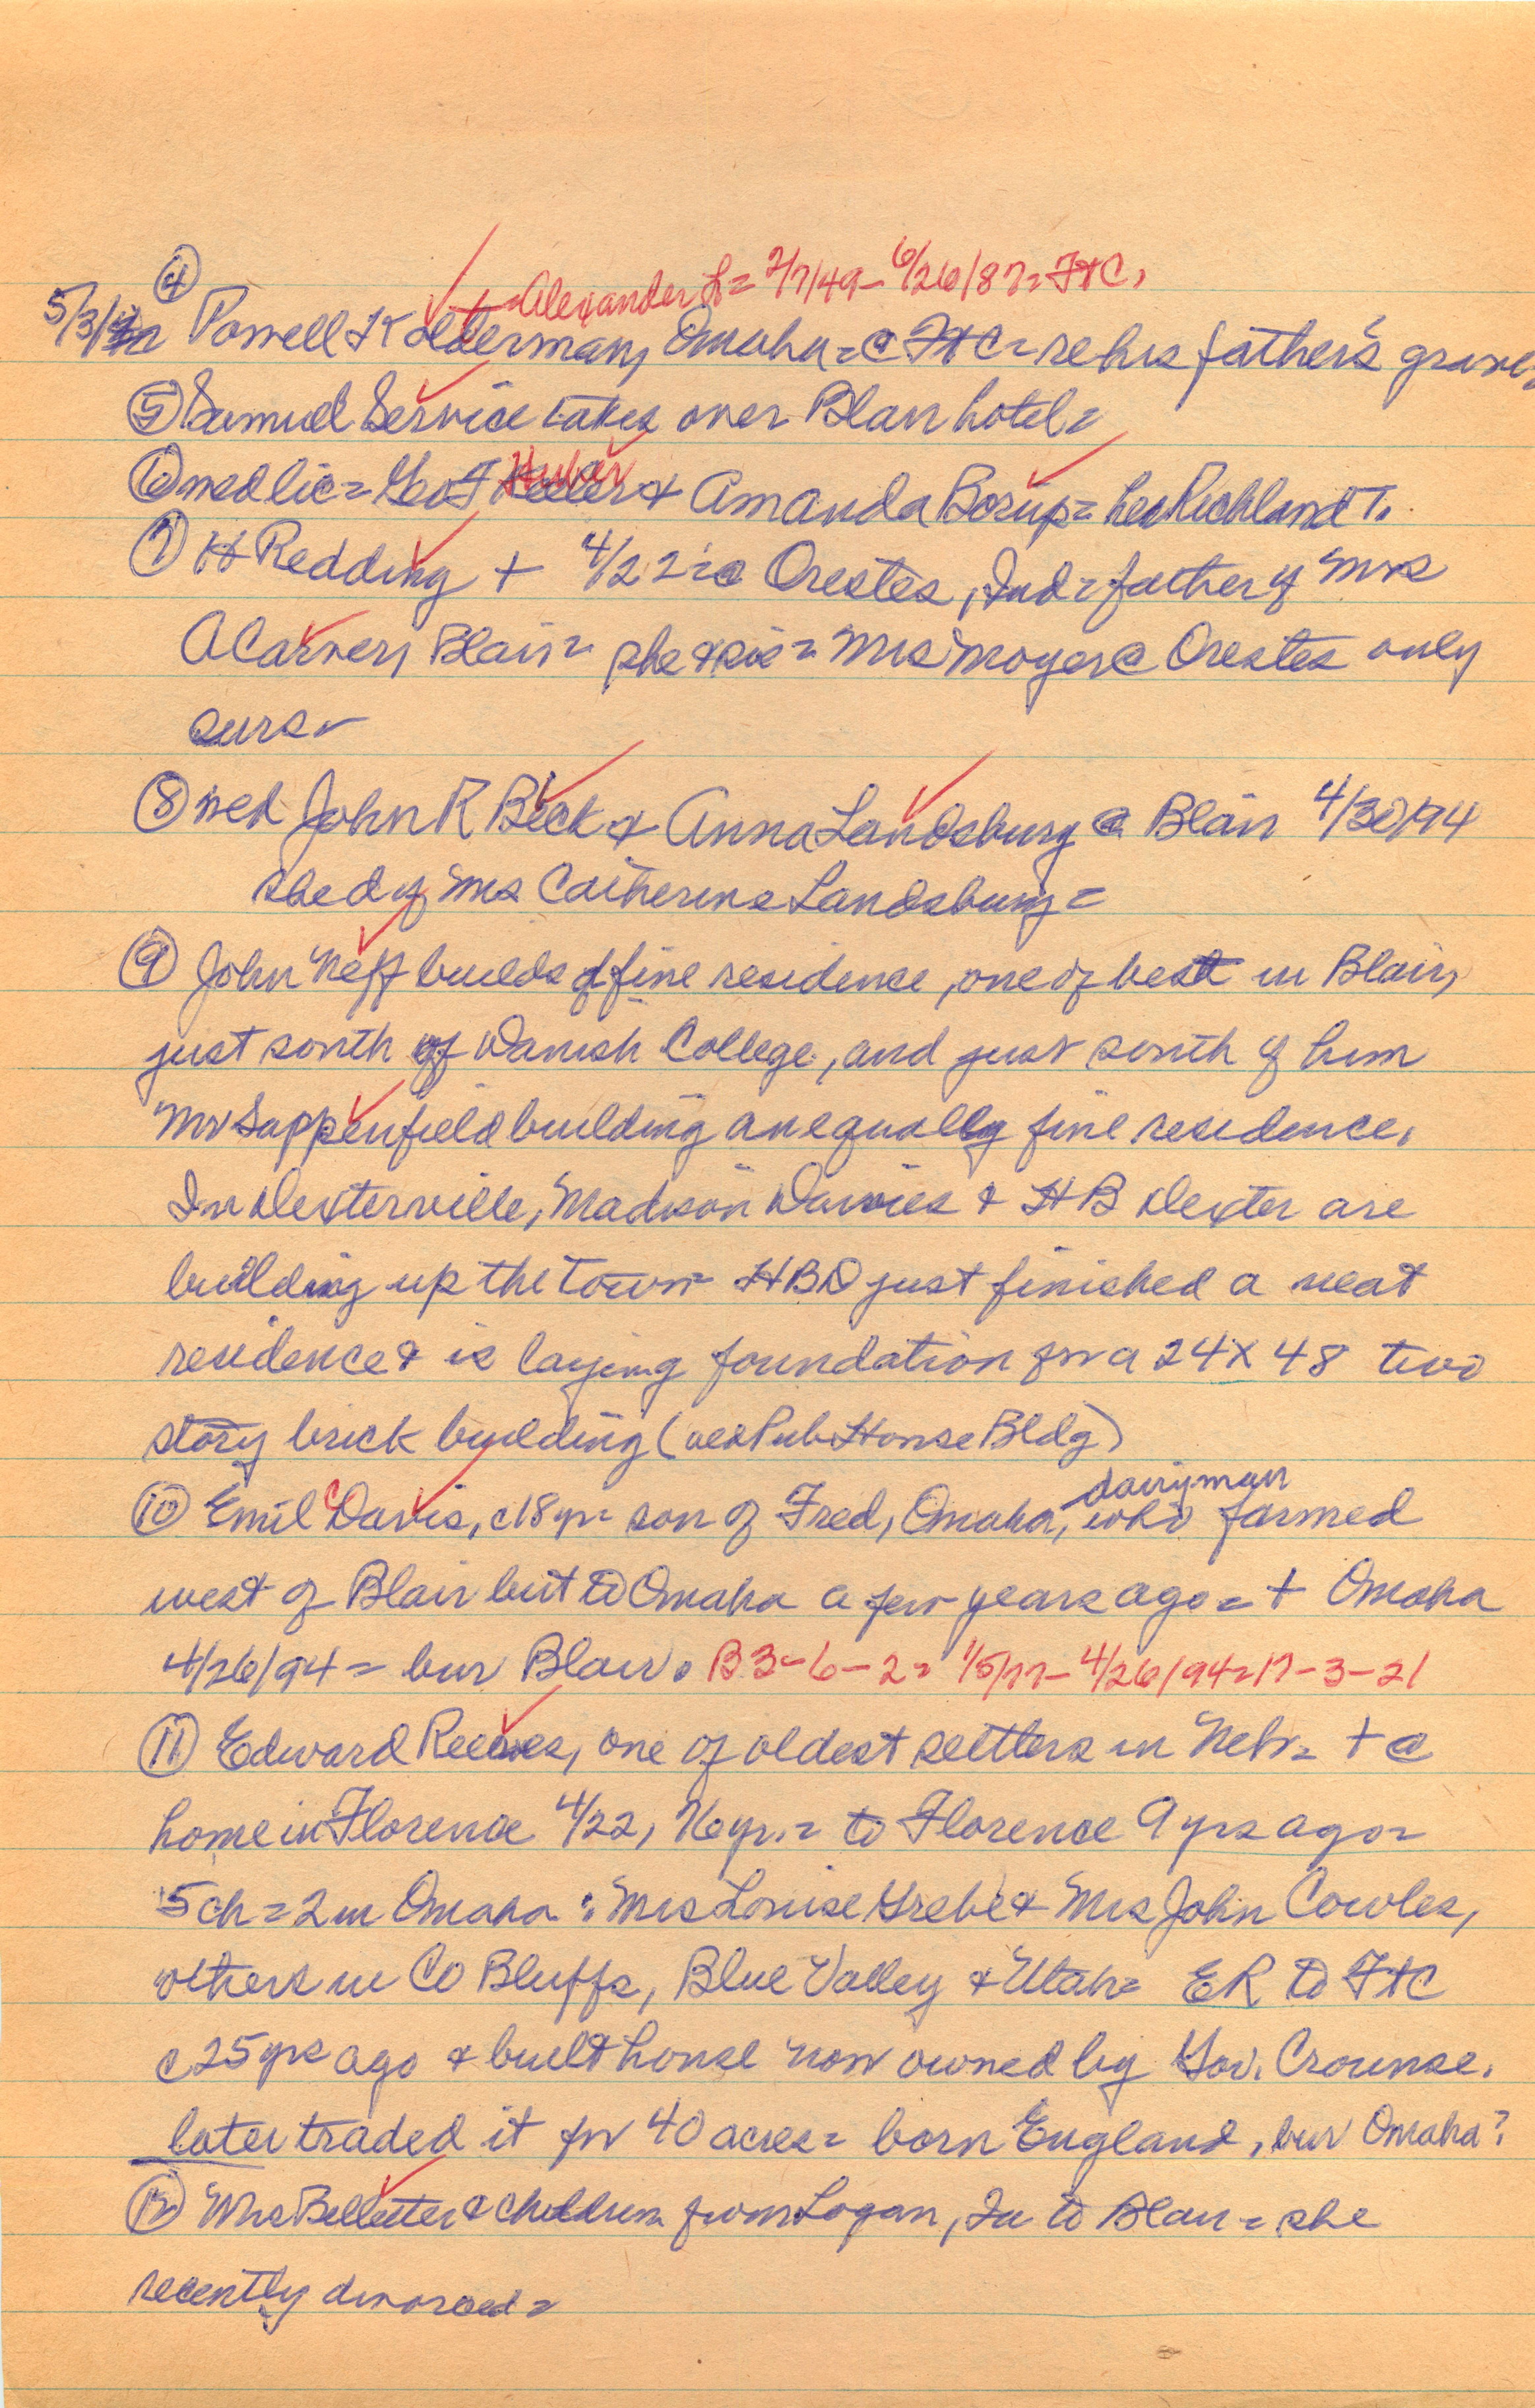 Alexander L = 2/7/49 - 6/26/87 = FtC.
5/3/
④ Powell Kelderman, Omaha = @ FtC = re his father's grave,
⑤ Samuel Service takes over Blair hotel =
⑥ wed lic = Geo F Huber & Amanda Borup = her Richland T.
⑦ H Redding + 4/22 = @ Orestes, Ind = father of Mrs
A Carver, Blair = she & sis = Mrs Moyer @ Orestes only
surs
⑧ wed John R Beck & Anna Landsburg @ Blair 4/30/94
she d of Mrs Catherine Landsburg =
⑨ John Neff builds fine residence, one of best in Blair,
just south of Danish College, and just south of him
Mr Sappenfield building an equally fine residence.
In Dexterville, Madison Davies & HB Dexter are
building up the town = HBD just finished a neat
residence & is laying foundation for a 24 x 48 two
story brick building (Pub House Bldg)
dairyman
⑩ Emil Davis, c18yr = son of Fred, Omaha, who farmed
west of Blair but to Omaha a few years ago = + Omaha
4/26/94 = bur Blair. B3-6-2 = 1/5/77 - 4/26/94 = 17-3-21
⑪ Edward Reeves, one of oldest settlers in Nebr = + @
home in Florence 4/22, 76yr. = to Florence 9 yrs ago =
5 ch = 2 in Omaha : Mrs Louise Grebe & Mrs John Cowles,
others in Co Bluffs, Blue Valley & Utah = ER to FtC
c25yrs ago & built house now owned by Gov. Crounse.
later traded it for 40 acres = born England, bur Omaha?
⑫ Mrs & children from Logan, Ia to Blair = she
recently divorced =